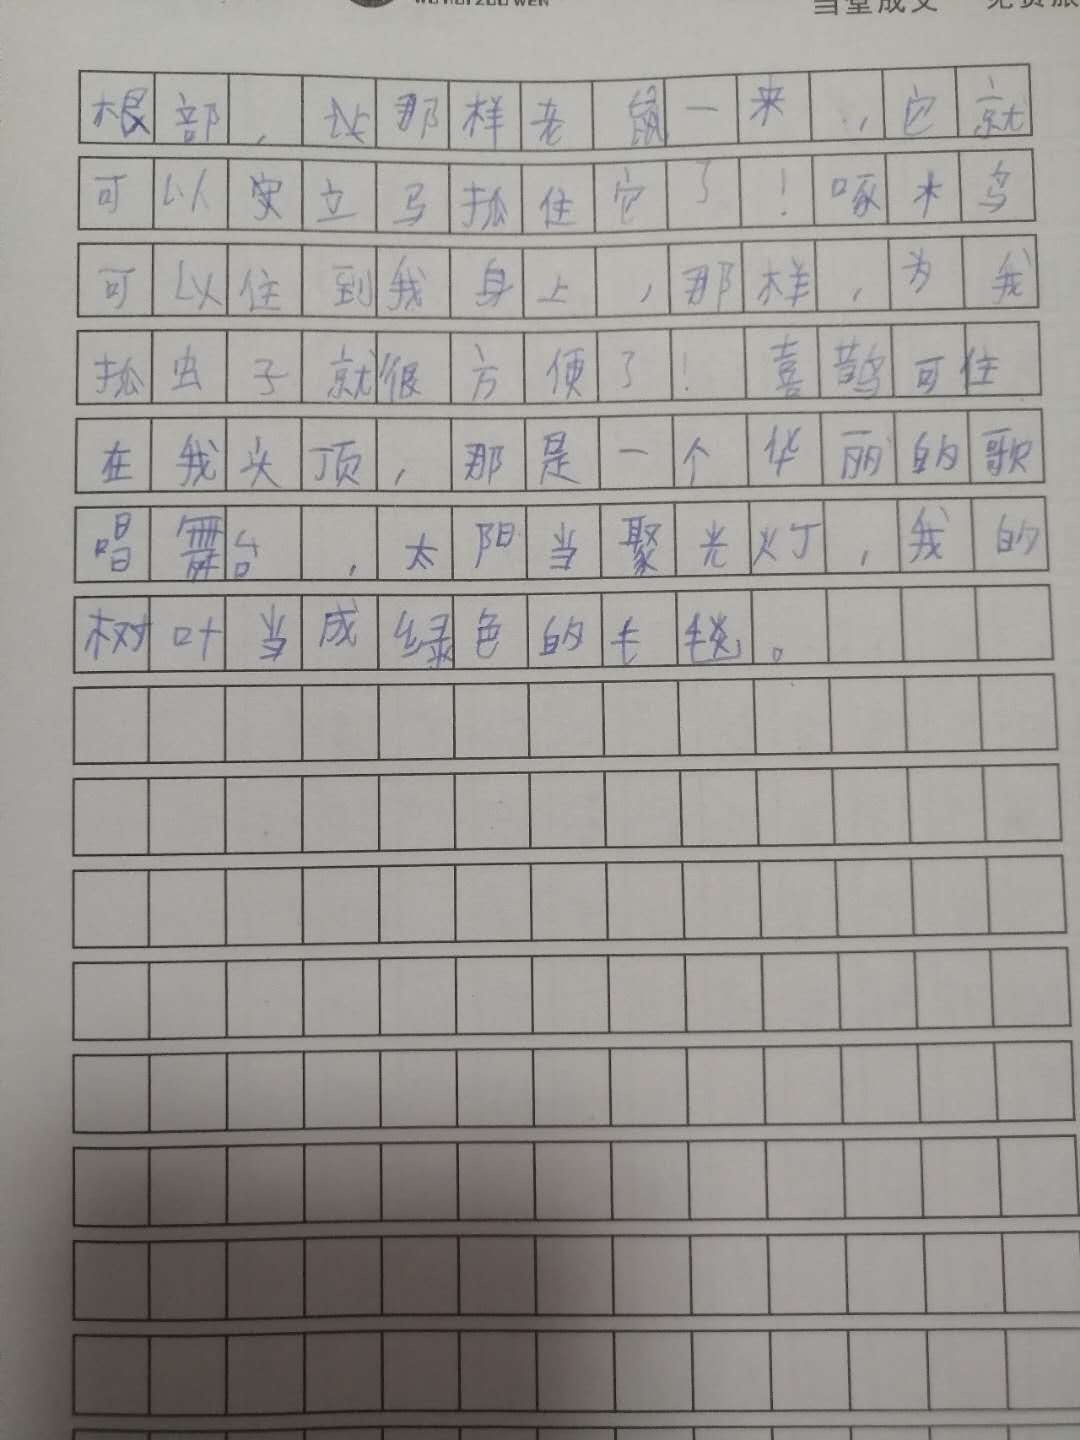 WU YOU ZUO WEN 当堂成文 免费
根部，让那样老鼠一来，，它就
可以实立马抓住它了！啄木鸟
可以住到我身上，那样，为我
抓虫子就很方便了！喜鹊可住
在我头顶，那是一个华丽的歌
唱舞台，太阳当聚光灯，我的
树叶当成绿色的毛毯。